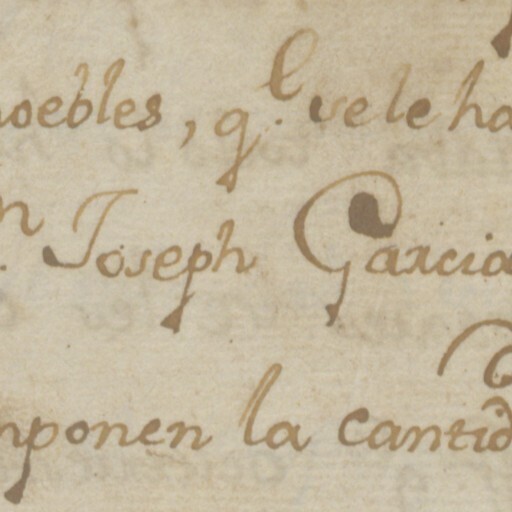 oebles, q.e se le ha
n. Joseph Garcia
mponen la cantid